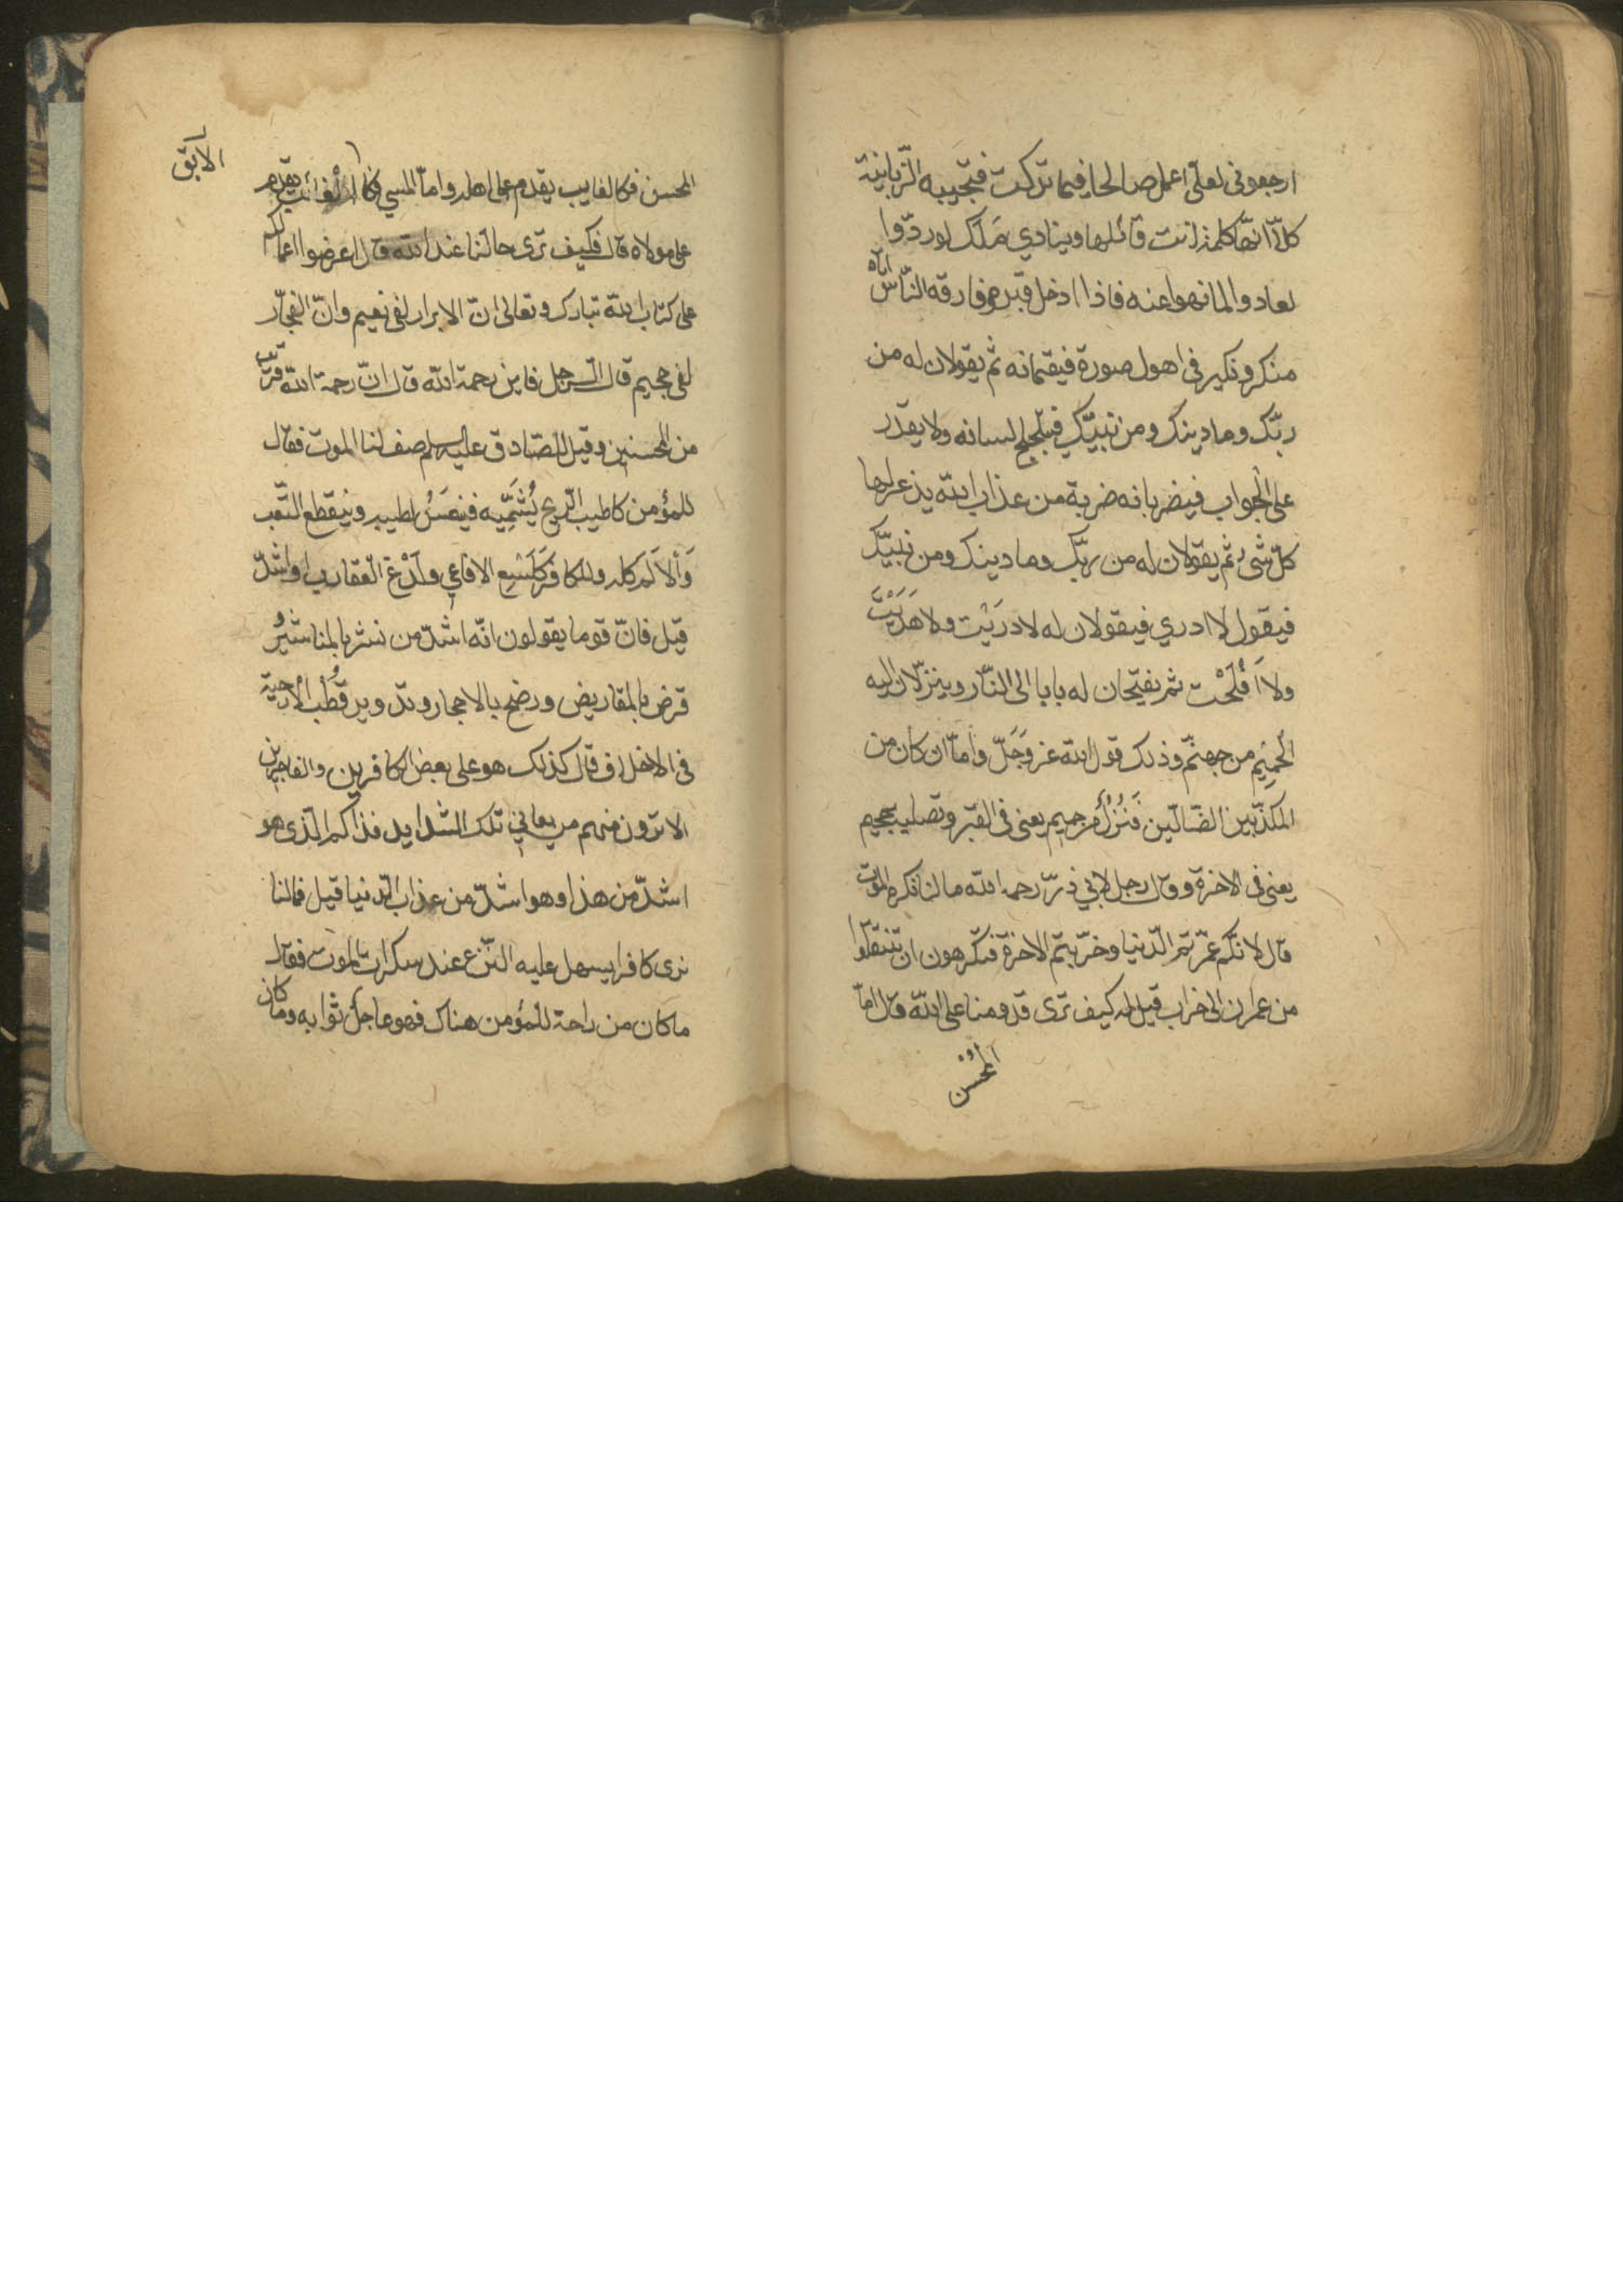 ارجعونى لعلّى اعمل صالحا فيما تركت فتجيبه الزّبانية
كلّا انّها كلمة انت قائلها وينادي مَلَك لو ردّوا
لعادوا لما نهوا عنه فاذا ادخل قبره وفارقه النّاس اتاه
منكر ونكير فى اهول صورة فيقيمانه ثم يقولان له من
ربّك وما دينك ومن نبيّك فيتلجلج لسانه ولا يقدر
على الجواب فيضربانه ضربة من عذاب الله يذعر لها
كلّ شىء ثم يقولان له من ربّك وما دينك ومن نبيّك
فيقول لا ادري فيقولان له لا دَرَيْت ولا هَدَيْتَ
ولا اَفْلَحْت ثم يفتحان له بابا الى النّار وينزلان اليه
الحَمِيم من جهنّم وذلك قول الله عز وَجَلّ وامّا ان كان من
المكذّبين الضّالّين فَنُزُلٌ من حميم يعنى فى القبر وتصلية جحيم
يعنى فى الاخرة وقال رجل لابي ذرّ رحمه الله ما لنا نكره الموت
قال لانّكم عمّرتم الدّنيا وخرّبتم الاخرة فتكرهون ان تنتقلوا
من عمران الى خراب قيل له كيف ترى قدومنا على الله قال امّا
المحسن
المحسن فكالغايب يقدم على اهله وامّا المسي فكا يقدم
الابق
على مولاه قال فكيف ترى حالنا عند الله قال اعرضوا اعمالكم
على كتاب الله تبارك وتعالى انّ الابرار لفى نعيم وانّ الفجّار
لفى جحيم قال الرجل فاين رحمة الله قال انّ رحمة الله قريب
من المحسنين وقيل للصّادق عليه السلم صف لنا الموت فقال
للمؤمن كاطيب الرّيح يُشَمِّيه فينعسُ لطيبه وينقطع التّعب
وَالاَلَم كله وللكافر كَلَسْع الافاعي ولَدْغ العقارب او اشدّ
قيل فانّ قوما يقولون انّه اشدّ من نشر بالمناشير و
قرض بالمقاريض ورضخ بالاحجار وتدوير قُطْب الأرحية
فى الاحداق قال كذلك هو على بعض الكافرين والفاجرين
الا ترون منهم من يعاني تلك الشدايد فذاكم الّذى هو
اشدّ من هذا وهو اشدّ من عذاب الدّنيا قيل فما لنا
نرى كافرا يسهل عليه النّزع عند سكرات الموت فقال
ما كان من راحة للمؤمن هناك فهو عاجل ثوابه وما كان